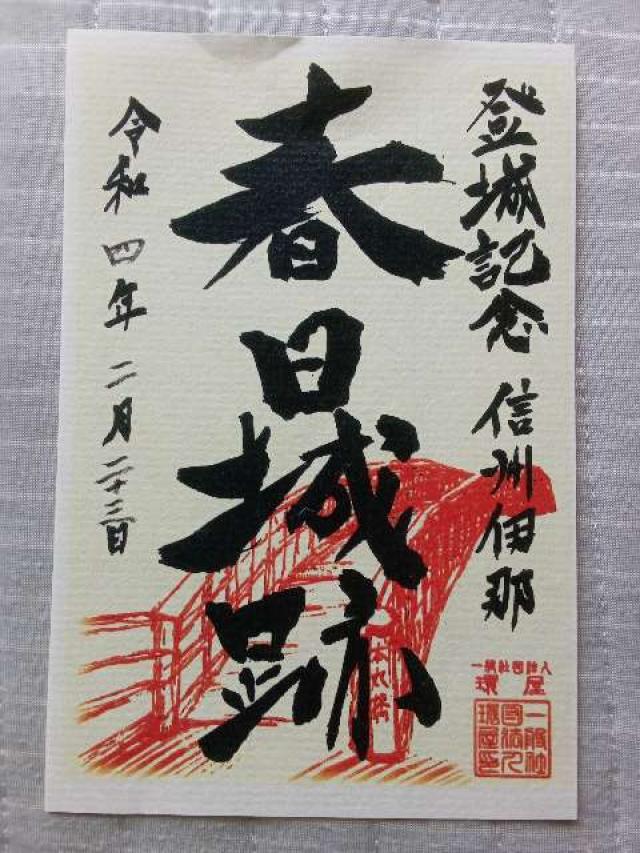 登城記念 信州伊那
春日城跡
令和四年 二月二十三日
本丸橋
一般社団法人
環屋
一般社
団法人
環屋之印